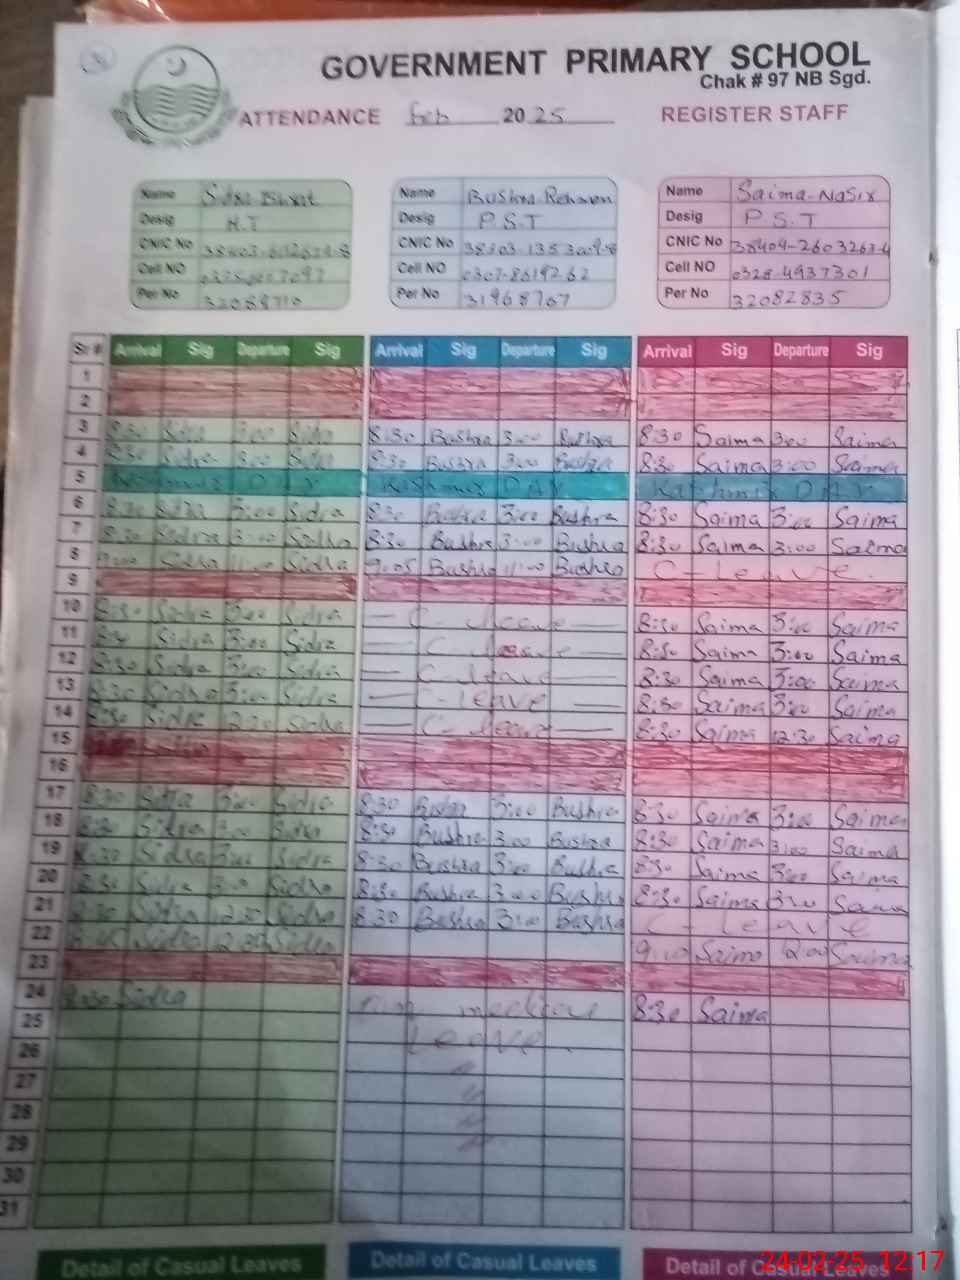 GOVERNMENT PRIMARY SCHOOL
Chak # 97 NB Sgd.
ATTENDANCE Feb 2025 REGISTER STAFF
Name Sidra Name Bushra Rehman Name Saima-Nasir
Desig H.T Desig P.S.T Desig P.S.T
CNIC No CNIC No CNIC No
Cell NO Cell NO 0307-8619262 Cell NO 0328-4937301
Per No 32089710 Per No 31968767 Per No 32082835
Sr # Arrival Sig Departure Sig Arrival Sig Departure Sig Arrival Sig Departure Sig
1
2
3 8:30 Sidra 3:00 Sidra 8:30 Bushra 3:00 Bushra 8:30 Saima 3:00 Saima
4 8:30 Sidra 3:00 Sidra 8:30 Bushra 3:00 Bushra 8:30 Saima 3:00 Saima
5 Kashmir DAY Kashmir DAY Kashmir DAY
6 8:30 Sidra 3:00 Sidra 8:30 Bushra 3:00 Bushra 8:30 Saima 3:00 Saima
7 8:30 Sidra 3:00 Sidra 8:30 Bushra 3:00 Bushra 8:30 Saima 3:00 Saima
8 9:00 Sidra 11:00 Sidra 9:05 Bushra 11:00 Bushra C-Leave.
9
10 8:30 Sidra 3:00 Sidra — C-leave — 8:30 Saima 3:00 Saima
11 Sidra 3:00 Sidra — C-leave — 8:30 Saima 3:00 Saima
12 8:30 Sidra 3:00 Sidra — C-leave 8:30 Saima 3:00 Saima
13 8:30 Sidra 3:00 Sidra — C-leave — 8:30 Saima 3:00 Saima
14 8:30 Sidra 12:30 Sidra — C-leave — 8:30 Saima 12:30 Saima
15
16
17 8:30 Sidra 3:00 Sidra 8:30 Bushra 3:00 Bushra 8:30 Saima 3:00 Saima
18 8:30 Sidra 3:00 Sidra 8:30 Bushra 3:00 Bushra 8:30 Saima 3:00 Saima
19 8:30 Sidra 3:00 Sidra 8:30 Bushra 3:00 Bushra 8:30 Saima 3:00 Saima
20 8:30 Sidra 3:00 Sidra 8:30 Bushra 3:00 Bushra 8:30 Saima 3:00 Saima
21 8:30 Sidra 12:30 Sidra 8:30 Bushra 3:00 Bushra C-Leave
22 Sidra 12:30 Sidra 9:10 Saima 12:00 Saima
23
24 8:30 Sidra medical 8:30 Saima
25 Leave.
26
27
28
29
30
31
Detail of Casual Leaves Detail of Casual Leaves Detail of Casual Leaves
24-02-25 12:17